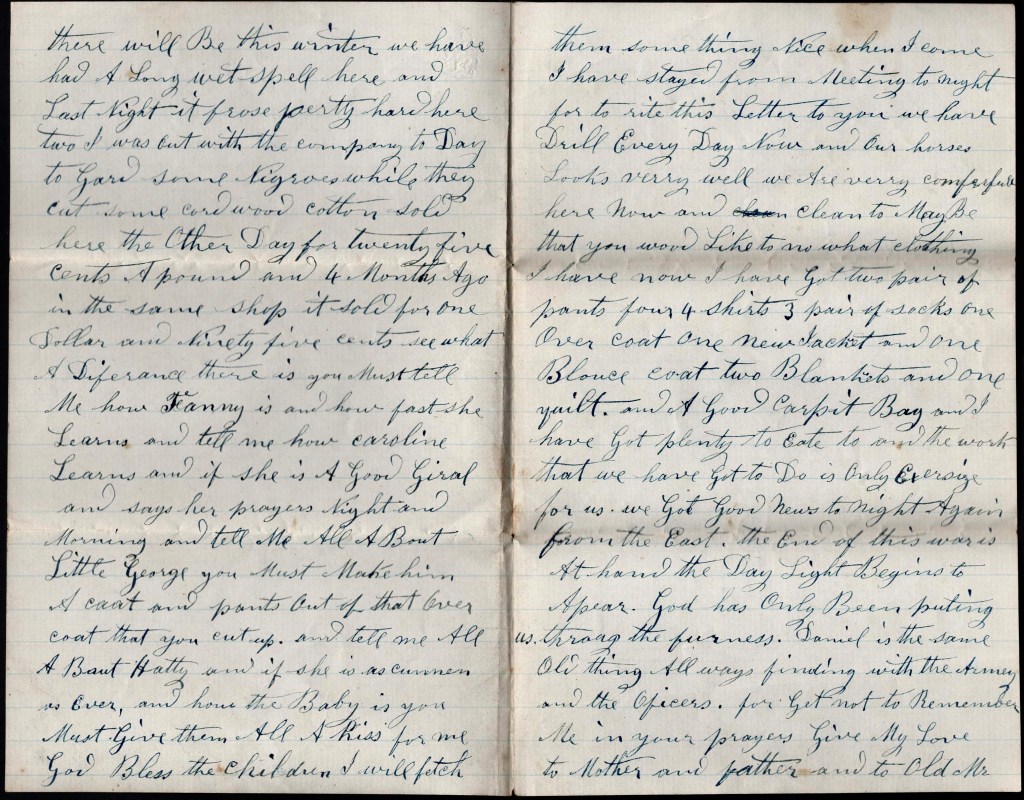 there will Be this winter we have
had A Long wet spell here and
Last Night it frose pertty hard here
two I was out with the company to Day
to Gard some Nigroes while they
cut some cord wood cotton sold
here the Other Day for twenty five
cents A pound and 4 Months Ago
in the same shop it sold for one
Dollar and Ninety five cents see what
A Diferance there is you Must tell
Me how Fanny is and how fast she
Learns and tell me how caroline
Learns and if she is A Good Giral
and says her prayers Night and
Morning and tell Me All A Bout
Little George you Must Make him
A coat and pants Out of that Over
coat that you cut up. and tell me All
A Baut Hatty and if she is as cunnen
as Ever, and how the Baby is you
Must Give them All A kiss for me
God Bless the children I will fetch
them some thing Nice when I come
I have stayed from Meeting to night
for to rite this Letter to you we have
Drill Every Day Now and Our horses
Looks verry well we Are verry
here Now and clean to May Be
that you wood Like to no what clothing
I have now I have Got two pair of
pants four 4 shirts 3 pair of socks one
Over coat One New Jacket and one
Blouce coat two Blankets and one
quilt. and A Good Carpit Bag and I
have Got plenty to Eate to and the work
that we have Got to Do is Only Exersize
for us. we Got Good News to Night Again
from the East. the End of this war is
At hand the Day Light Begins to
Apear. God has Only Been puting
us. throag the furness. Daniel is the same
Old thing All ways finding with the Armey
and the Oficers. for Get not to Remember
Me in your prayers Give My Love
to Mother and father and to Old Mr